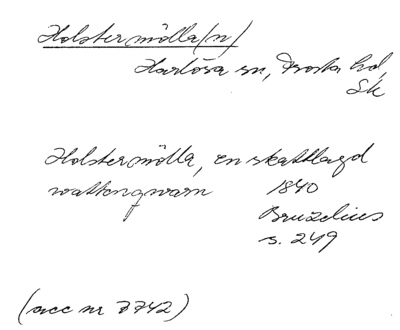 Holstermölla/n/
Harlösa sn, Frosta hd,
Sk
Holstermölla, en skattlagd
wattenqwarn 1840
Bruzelius
s. 249
(acc nr 7742)